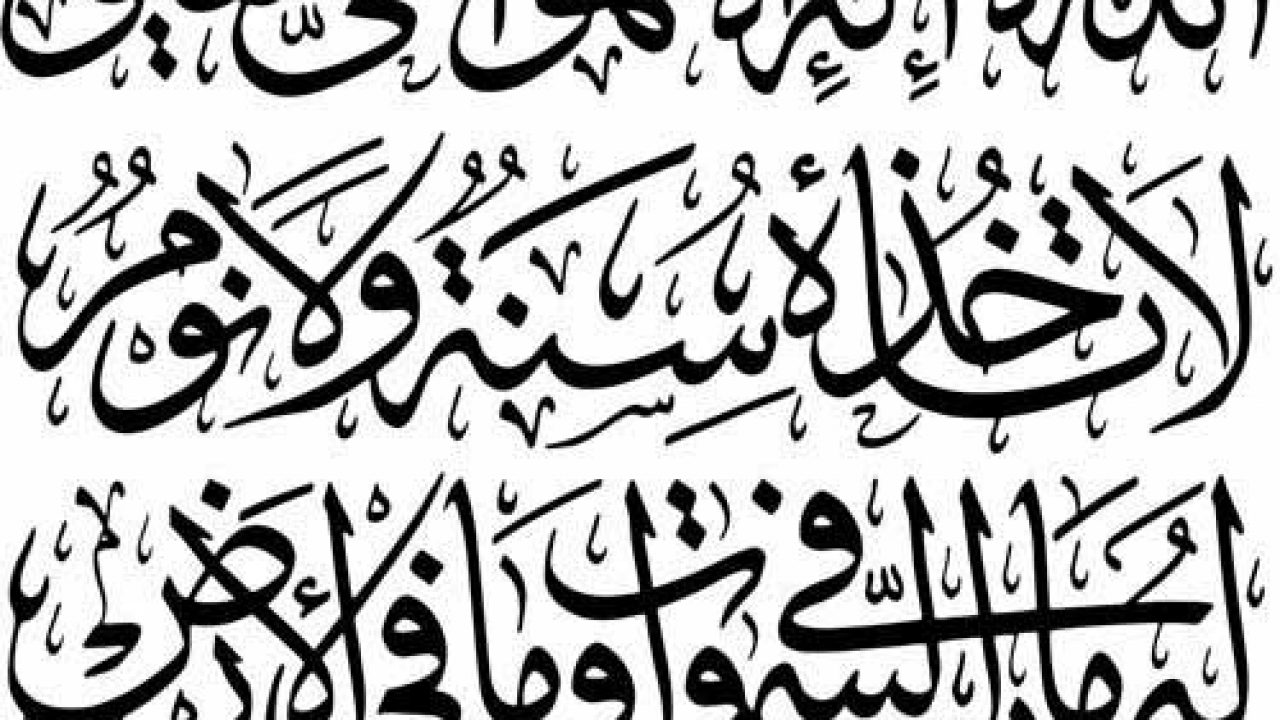 اللهُ لَا إِلٰهَ إِلَّا هُوَ الْحَيُّ الْقَيُّومُ
لَا تَأْخُذُهُ سِنَةٌ وَلَا نَوْمٌ
لَهُ مَا فِي السَّمٰوَاتِ وَمَا فِي الْأَرْضِ